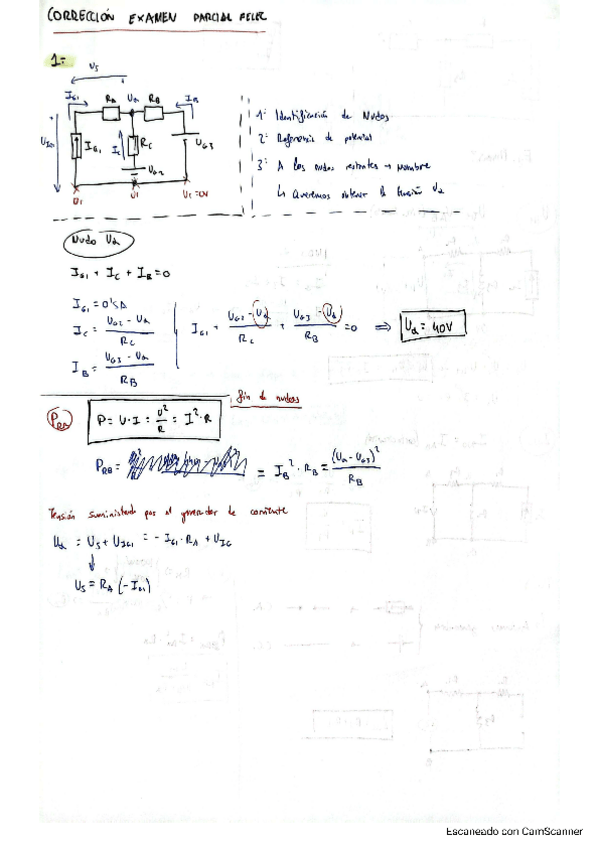 CORRECCIÓN EXAMEN PARCIAL FEEE
1=
Us
IG1 RA Ua RB IB
IG1 IC RC UG3
UG2
Uc=0V
1º Identificación de Nudos
2º Referencia de potencial
3º A los nudos restantes → Nombre
↳ Queremos obtener la tensión Ua
Nudo Ua
IG1 + IC + IB = 0
IG1 = 0'5A
IC = (UG2 - Ua) / RC
IB = (UG3 - Ua) / RB
IG1 + (UG2 - Ua) / RC + (UG3 - Ua) / RB = 0 ⇒ Ua = 40V
fin de nudos
P = U·I = U²/R = I²·R
PRB = = IB² · RB = (Ua - UG3)² / RB
Tensión suministrada por el generador de corriente
Ua = Us + UIG1 = - IG1 · RA + UIG
Us = RA (-IG1)
Escaneado con CamScanner